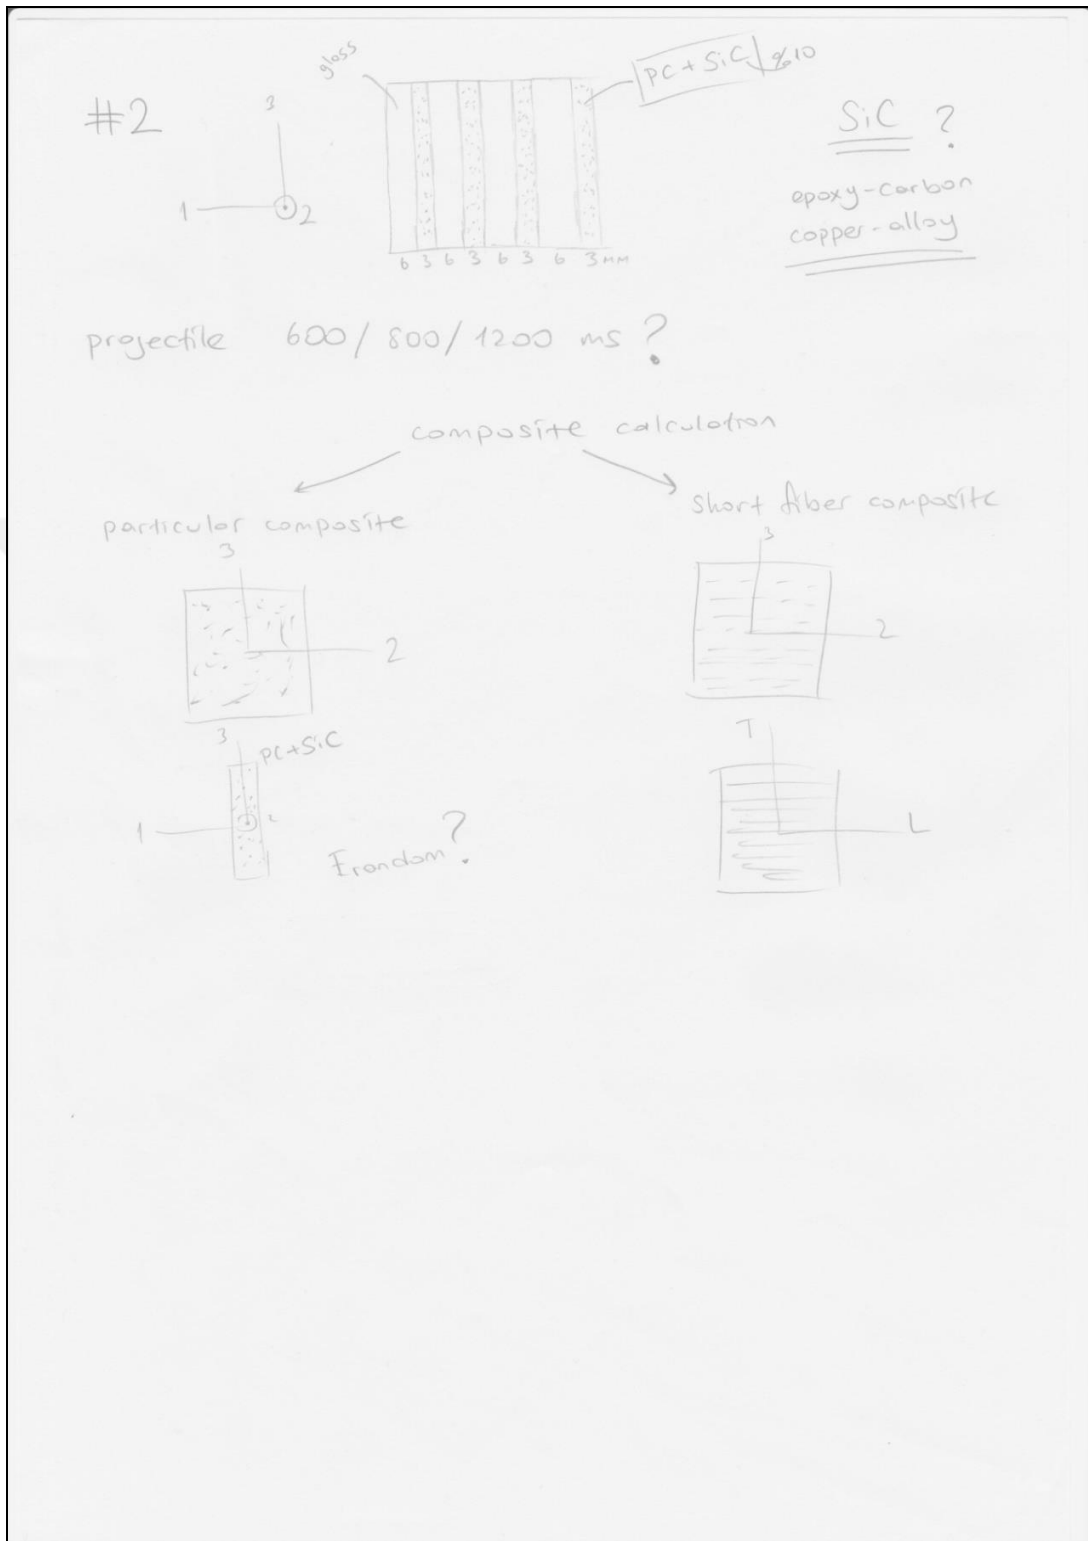 #2
3
1 2
glass
PC + SiC %10
6 3 6 3 6 3 6 3 mm
SiC ?
epoxy-carbon
copper-alloy
projectile 600 / 800 / 1200 ms ?
composite calculation
particular composite
3
2
3
PC+SiC
1 2
Erandom ?
short fiber composite
3
2
T
L